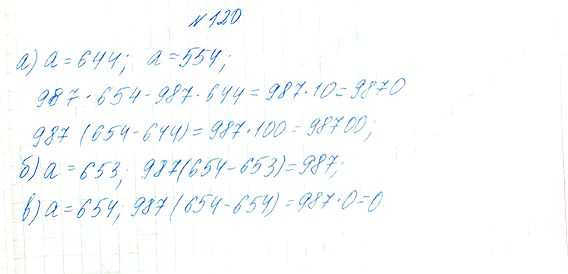 №120
а) a = 644; a = 554;
987 · 654 - 987 · 644 = 987 · 10 = 9870
987 (654 - 644) = 987 · 100 = 98700;
б) a = 653; 987(654 - 653) = 987;
в) a = 654; 987 (654 - 654) = 987 · 0 = 0